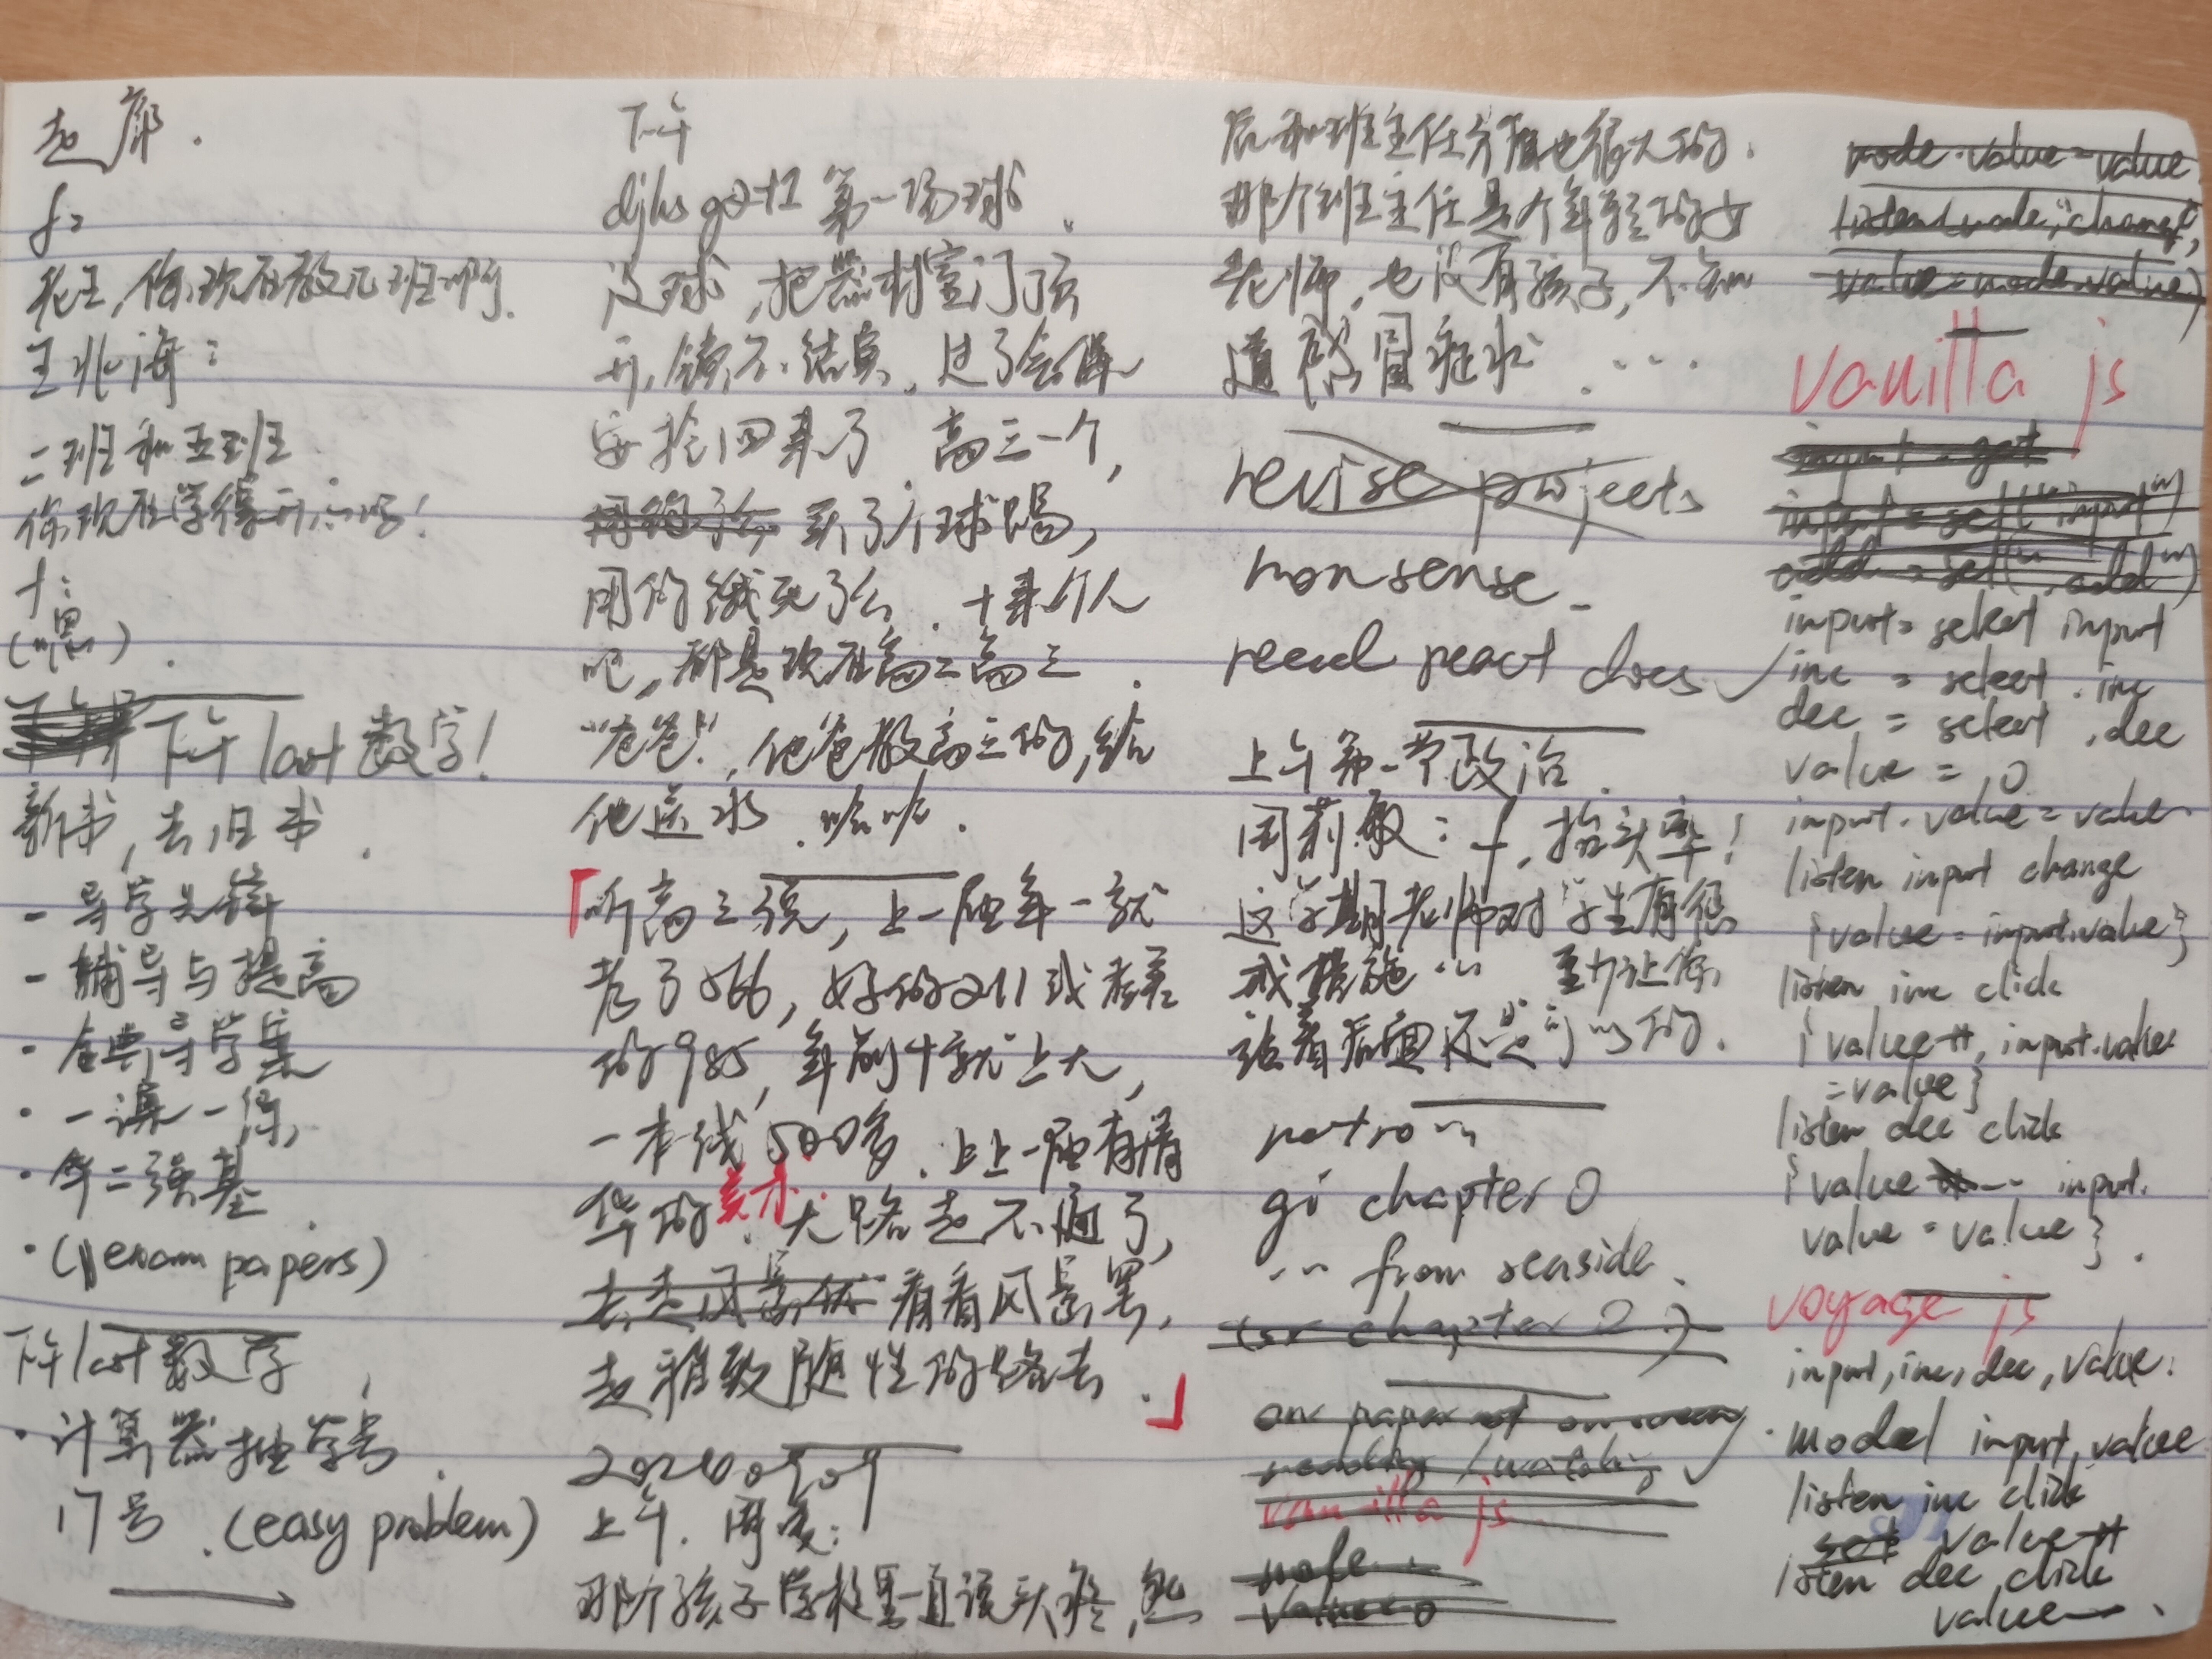 走廊.
f:
老王,你现在教几班啊.
王兆海:
二班和五班.
你现在学得开心吗!
f:
(嗯).
下午last数学!
新书,去旧书.
- 导学先锋
- 辅导与提高
· 金典导学案
· 一课一练,
· 华二强基.
· (exam papers)
下午last数学,
· 计算器抽学号.
17号.(easy problem)
下午
djhs g2 t1 第一场球.
没球,把器材室门
开,锁不结实,过了会
回来了.高三一个,
买了个球踢,
用的.十来个人
吧,都是现在高二高三.
"爸爸!",他爸教高三的,给
他送水.哈哈.
「听高三说,上一届第一就
考了566,好的211或者差
的985,年前十就上大,
一本线500多.上上一届有清
华的美术.大路走不通了,
看看风景罢,
走雅致随性的路去.」
20260909
上午.周:
那个孩子学校里一直说头疼,然
后和班主任方面也很大的.
那个班主任是个年轻的女
老师,也没有孩子,不知
道感冒 ....
revise projects
nonsense.
read react docs ✓
上午第一节政治.
周莉敏:f,抬头率!
这学期老师对学生有惩
戒措施... 至少让你
站着后面还是可以的.
retro...
gi chapter 0
... from seaside.
(or chapter 0.)
on paper not on screen.
reading / watching
vanilla js
value = 0
mode.value = value
listen(node,"change",
value = node.value)
vanilla js
input = get
input = sel("input")
input = select input
inc = select .inc
dec = select .dec
value = 0
input.value = value
listen input change
{value = input.value}
listen inc click
{value++, input.value
=value}
listen dec click
{value--, input.
value = value}.
voyage js
input, inc, dec, value.
model input, value
listen inc click
set value++
listen dec click
value--.